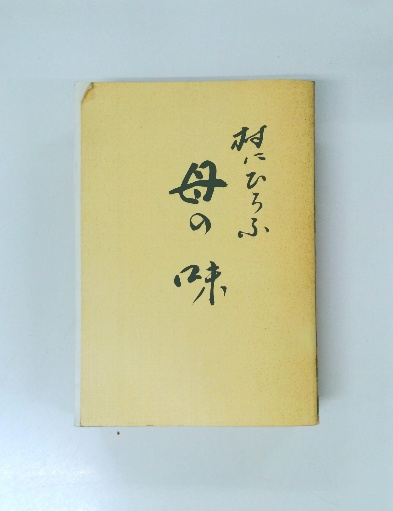 村にひろふ
母の味